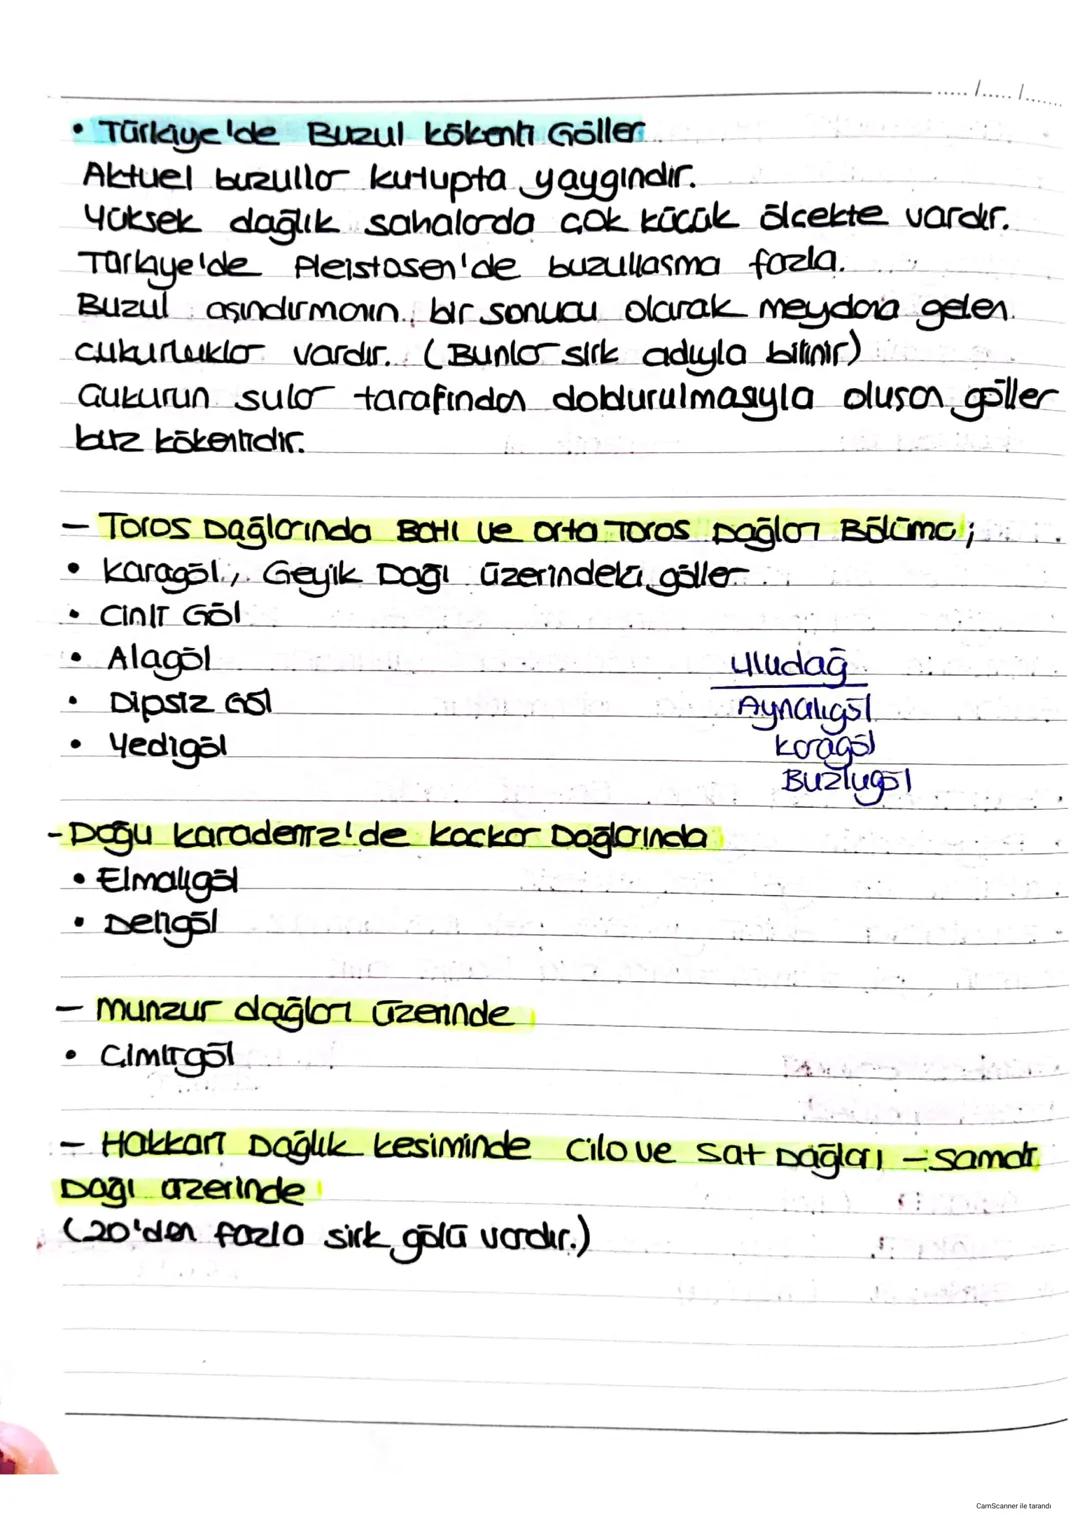 ..... /..... /.......
• Türkiye'de Buzul kökenli Göller
Aktuel buzullar kutupta yaygındır.
Yüksek dağlık sahalarda çok küçük ölçekte vardır.
Türkiye'de Pleistosen'de buzullaşma fazla.
Buzul aşındırmanın bir sonucu olarak meydana gelen
çukurluklar vardır. (Bunlar sirk adıyla bilinir)
Çukurun sular tarafından doldurulmasıyla oluşan göller
buz kökenlidir.
– Toros Dağlarında Batı ve Orta Toros Dağları Bölümü;
• Karagöl, Geyik Dağı üzerindeki göller
• Cinli Göl
• Alagöl
• Dipsiz Göl
• Yedigöl
Uludağ
Aynalıgöl
Karagöl
Buzlugöl
- Doğu Karadeniz'de Kackar Dağlarında
• Elmalıgöl
• Deligöl
– Munzur dağları üzerinde
• Çimligöl
– Hakkari Dağlık kesiminde Cilo ve Sat Dağları – Samdı
Dağı üzerinde
(20'den fazla sirk gölü vardır.)
CamScanner ile tarandı